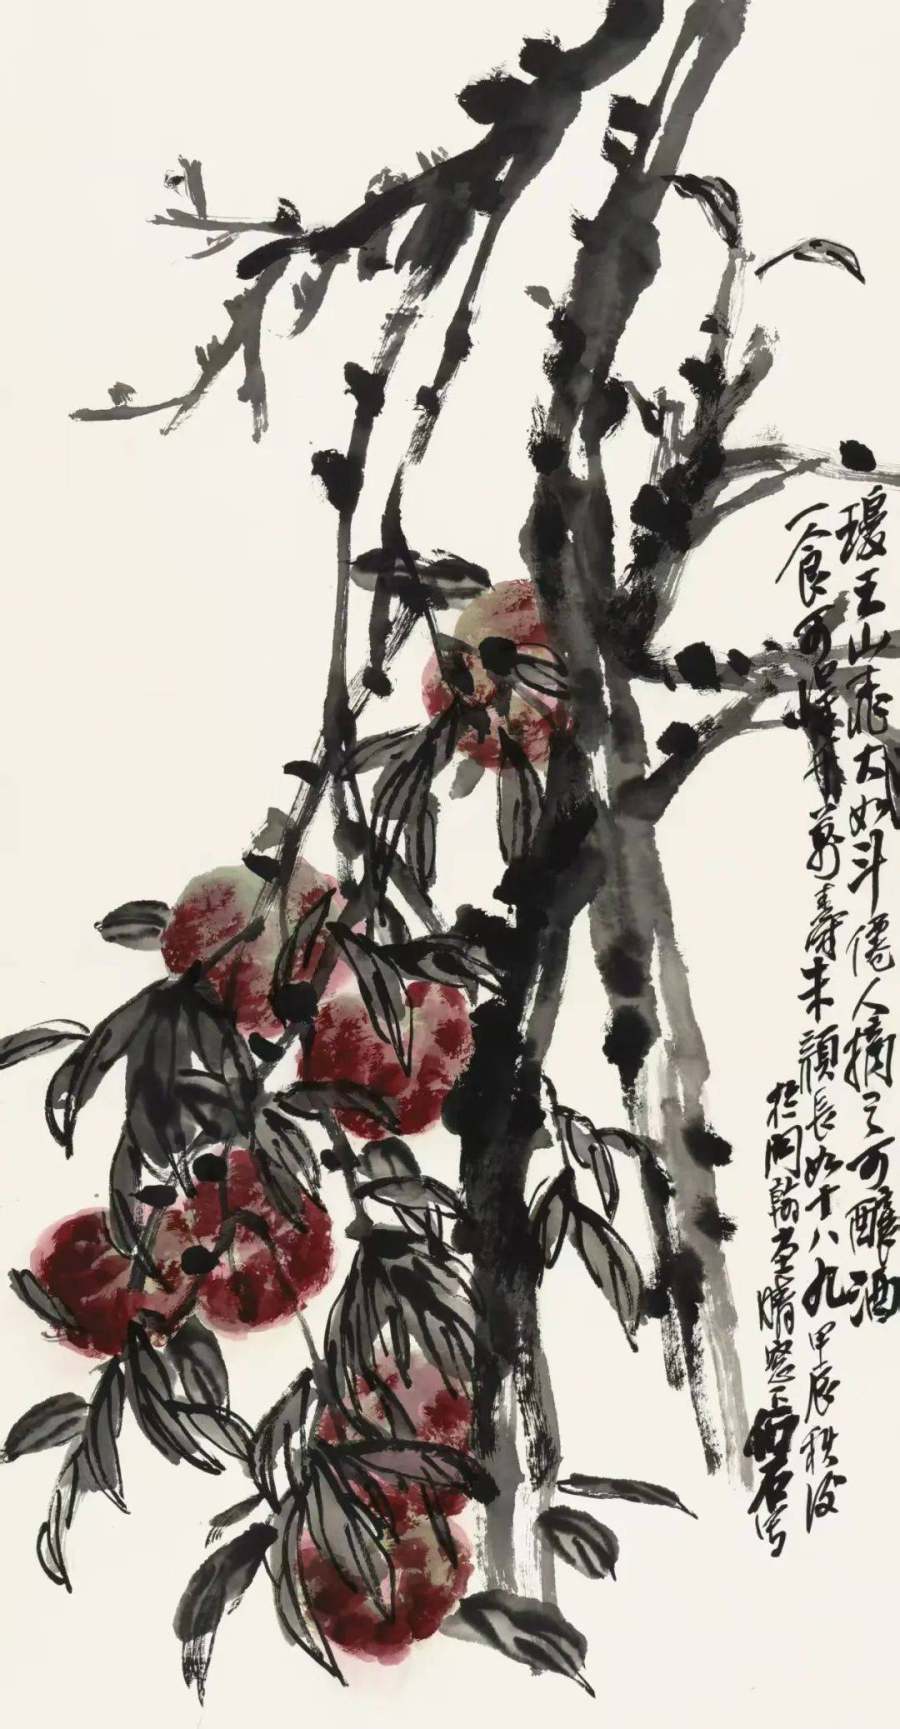 瓊玉山桃大如斗僊人摘之可釀酒
一食可得千萬壽朱顏長如十八九甲辰秋後
於同齋堂晴窗下佰石